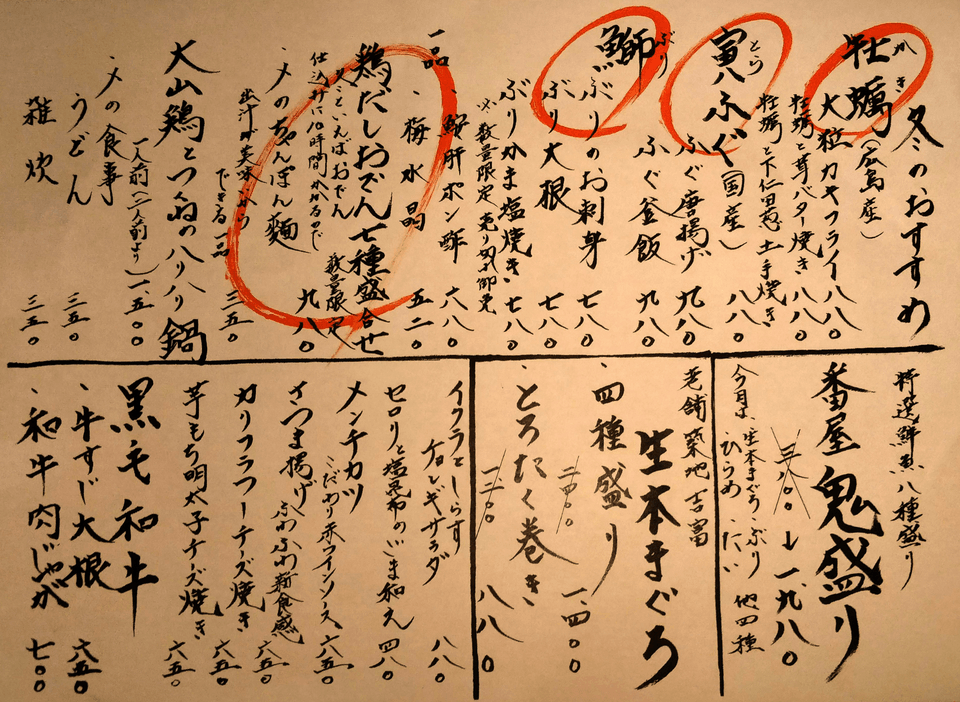 冬のおすすめ
牡蠣（広島産）
かき
大粒カキフライ 八八〇
牡蠣と芋バター焼き 八八〇
牡蠣と下仁田葱土手焼き 八八〇
寅八ふぐ（国産）
とら
ふぐ唐揚げ 九八〇
ふぐ釜飯 九八〇
鰤
ぶり
ぶりのお刺身 七八〇
ぶり大根 七八〇
ぶりかま塩焼き 七八〇
※数量限定 売り切れ御免
一品
、鮟肝ポン酢 六八〇
、梅水晶 五二〇
鶏だしおでん七種盛合せ
冬といえばおでん
仕込みに10時間かかるので
数量限定 九八〇
、〆のちゃんぽん麺
出汁が美味いから
できる一品 三五〇
大山鶏とつみれのハリハリ鍋
一人前（二人前より）一、五〇〇
、〆の食事
うどん 三五〇
雑炊 三五〇
特選鮮魚八種盛り
番屋鬼盛り
三、八〇〇 → 一、九八〇
今日は、生本まぐろ、ぶり
ひらめ、たい
他四種
老舗築地吉富
生本まぐろ
、四種盛り 二、四〇〇 一、四〇〇
、とろたく巻き 一、二〇〇 八八〇
イクラとしらす
チョレギサラダ 八八〇
セロリと塩昆布のごま和え 四八〇
メンチカツ
こだわり赤ワインソース 六五〇
さつま揚げ ふわふわ新食感 六五〇
カリフラワーチーズ焼き 六五〇
芋もち明太子チーズ焼き 六五〇
黒毛和牛
、牛すじ大根 六五〇
、和牛肉じゃが 七〇〇